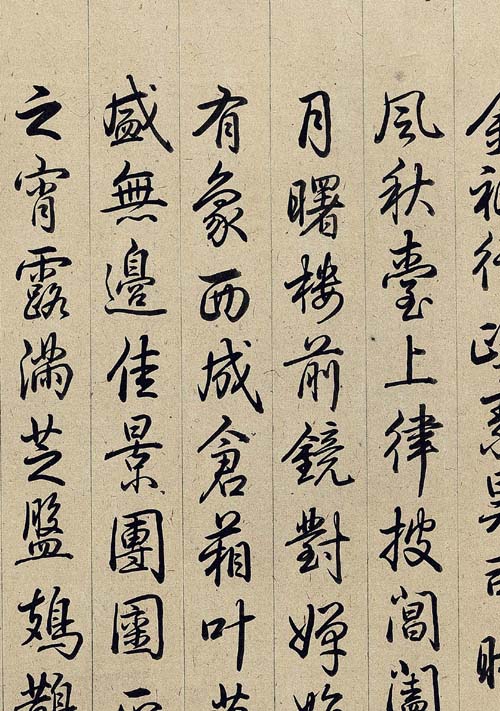 金祇行政
風秋臺上律披閶闔
月曙樓前鏡對嬋娟
有象西成倉葙叶
盛無邊佳景團
之宵露滿芝盤鳷鵲